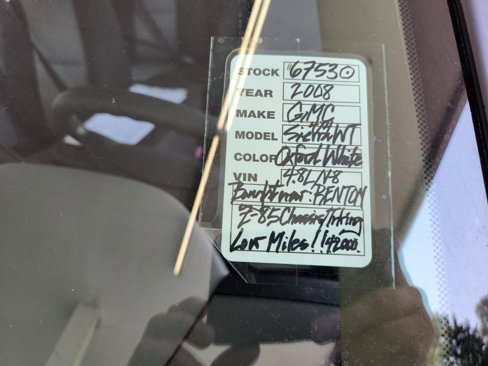 STOCK 67530
YEAR 2008
MAKE GMC
MODEL Sierra WT
COLOR Oxford White
VIN 4.8L V-8
BENTON
Z-85 Chassis
Low Miles!! 142000.